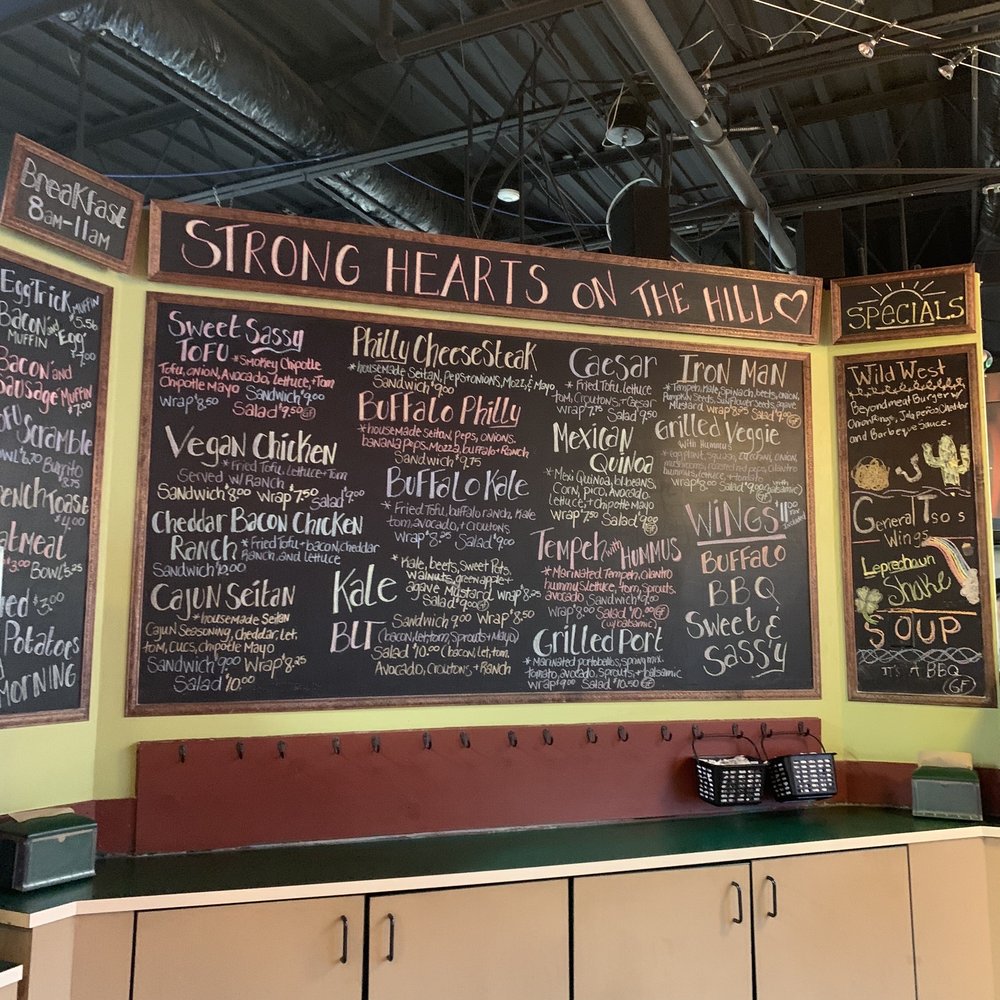 Breakfast
8am-11am
STRONG HEARTS ON THE HILL
EggTrick
MUFFIN
$5.56
Bacon and "Egg"
MUFFIN
Bacon and
Sausage Muffin
$7.00
Scramble
$6.70 Burrito
$8.75
French Toast
$4.00
Oatmeal
$3.00 Bowl $5.25
$3.00
Potatoes
MORNING
Sweet Sassy
TOFU *Smokey Chipotle
Tofu, onion, Avocado, lettuce, + Tom
Chipotle Mayo Sandwich $9.00
Wrap $8.50
Salad $9.50 GF
Vegan Chicken
*Fried Tofu, Lettuce + Tom
Served w/ Ranch
Sandwich $8.00 Wrap $7.50 Salad $9.00
Cheddar Bacon Chicken
Ranch *Fried Tofu + bacon, cheddar
Ranch, and lettuce
Sandwich $10.00
Cajun Seitan
*housemade Seitan
Cajun Seasoning, Cheddar, Let,
Tom, Cucs, chipotle Mayo
Sandwich $9.00 Wrap $8.25
Salad $10.00
Philly CheeseSteak
*housemade Seitan, peps + onions, Mozz, & Mayo
Sandwich $9.00
Buffalo Philly
*housemade Seitan, peps, onions,
banana peps, Mozza, buffalo + Ranch
Sandwich $9.75
Buffalo Kale
*Fried Tofu, buffalo ranch, Kale
tom, avocado, + croutons
Wrap $8.25 Salad $9.00
Kale
*Kale, beets, Sweet Pots,
walnuts, green apple +
agave Mustard Wrap $8.50
Salad $9.00 GF
Sandwich $9.00 Wrap $8.50
BLT (bacon, let, tom, Sprouts + Mayo)
Salad $10.00 (bacon, let, tom,
Avocado, Croutons + Ranch
Caesar
*Fried Tofu, lettuce
tom, Croutons, + Caesar
Wrap 7.75 Salad 9.50
Mexican
Quinoa
*Mexi Quinoa, bl. beans,
Corn, pico, Avocado,
Lettuce, + Chipotle Mayo
Wrap $7.50 Salad $9.00 GF
Tempeh with HUMMUS
*Marinated Tempeh, cilantro
hummus, lettuce, tom, sprouts,
avocado Sandwich $9.00
Wrap $8.00 Salad $10.00 GF
(w/balsamic)
Grilled Port
*Marinated portobellos, spring mix
tomato, avocado, Sprouts, + balsamic
Wrap $9.00 Salad $10.50 GF
Iron Man
*Tempeh, Kale, Spinach, beets, onion,
Pumpkin Seeds, Sunflower Seeds, agave
Mustard Wrap 8.25 Salad 9.00 GF
Grilled Veggie
with Hummus
*eggplant, squash, zucchini, onion,
mushrooms, roasted red peps, cilantro
hummus, lettuce + tomato
Wrap $8.00 Salad $9.00 (with balsamic)
WINGS!!
BUFFALO
BBQ
Sweet &
Sassy
SPECIALS
Wild West
Beyond meat Burger w/
Onion Rings, Jalapeños, Cheddar
and Barbeque Sauce.
General Tso's
Wings
Leprechaun
Shake
SOUP
IT'S A BBQ
GF